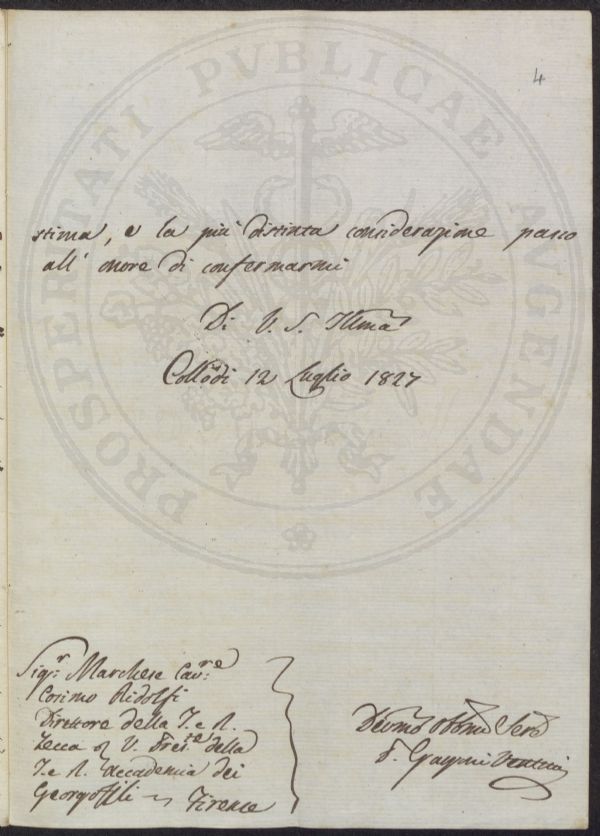 4
PROSPERITATI PVBLICAE AVGENDAE
stima, e la più distinta considerazione passo
all' onore di confermarmi
Di V. S. Illma
Collodi 12 Luglio 1827
Sigr. Marchese Cavre.
Cosimo Ridolfi
Direttore della I. e R.
Zecca e V. Preste. della
I. e R. Accademia dei
Georgofili Firenze
Devmo Obbmo Serve